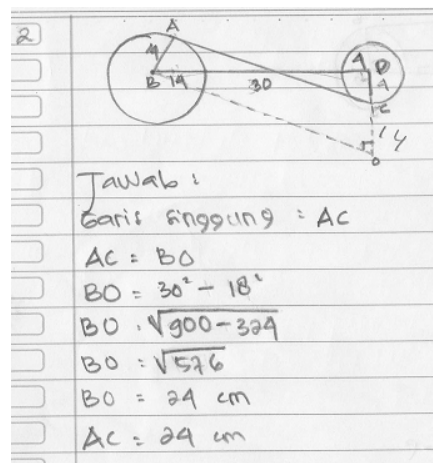 2
A
14
B 14 30 4 D
4
C
14
O
Jawab :
Garis singgung : AC
AC = BO
BO = 30² - 18²
BO = √900-324
BO = √576
BO = 24 cm
AC = 24 cm